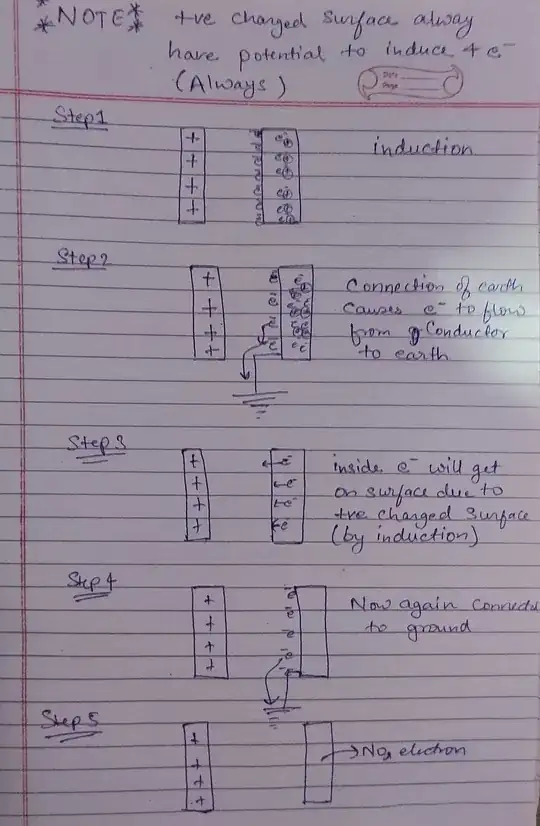 *NOTE* +ve charged surface alway
have potential to induce 4 e⁻
(Always)
Date
Page
Step1
+
+
+
+
induction
Step2
+
+
+
+
Connection of earth
causes e⁻ to flow
from Conductor
to earth
Step3
+
+
+
+
e⁻
e⁻
e⁻
e⁻
inside e⁻ will get
on surface due to
+ve charged surface
(by induction)
Step4
+
+
+
+
e⁻
e⁻
e⁻
e⁻
e⁻
Now again connected
to ground
Step5
+
+
+
+
No electron